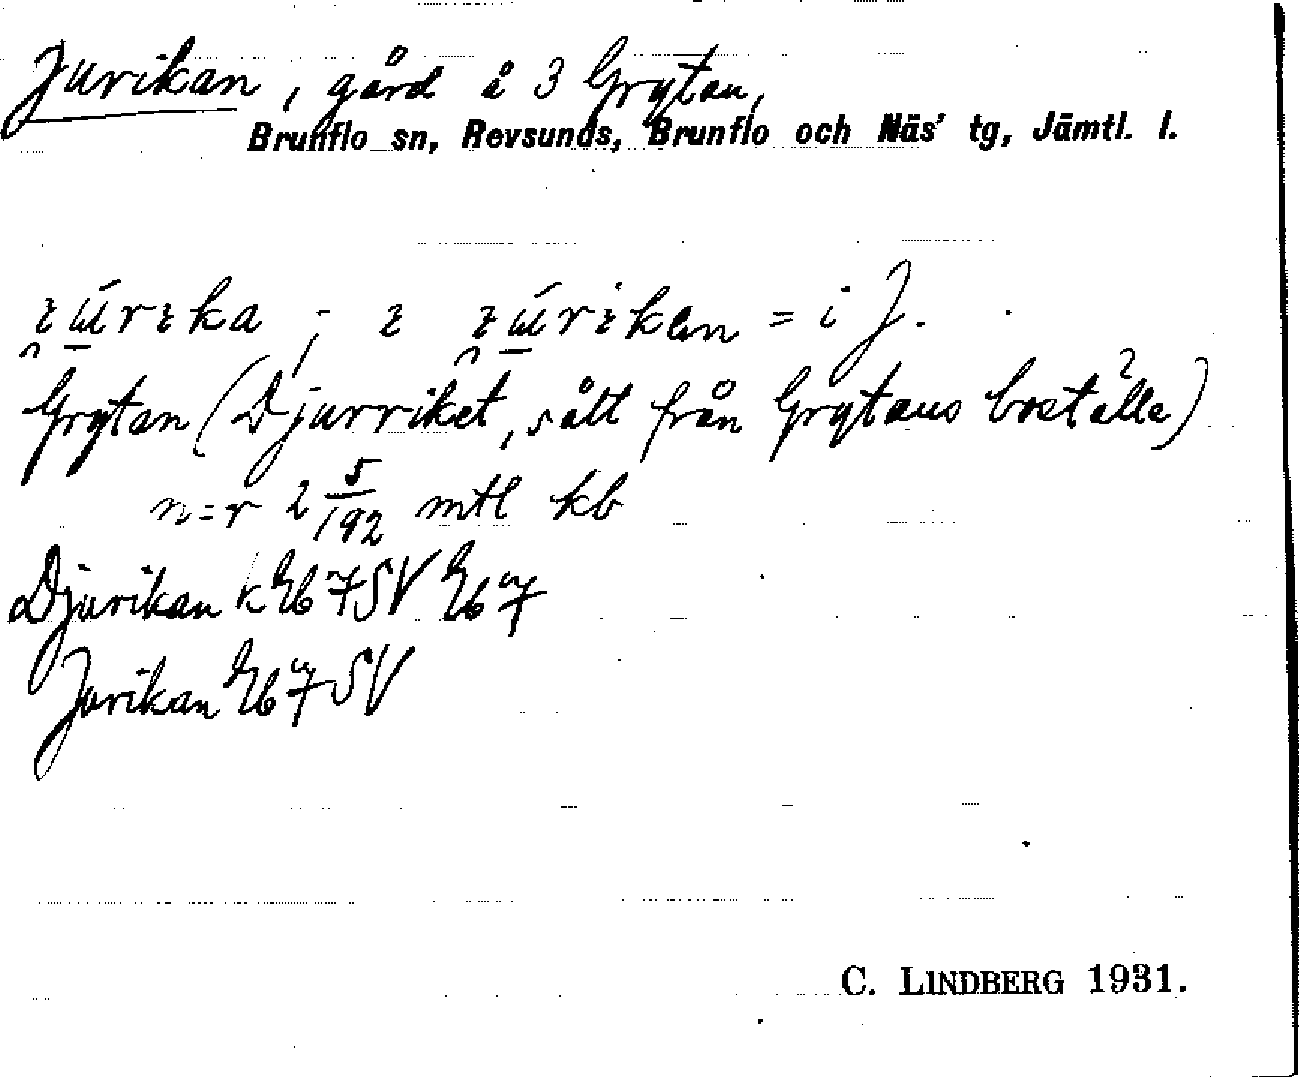 Jurikan, gård å 3 Grytan,
Brunflo sn, Revsunds, Brunflo och Näs' tg, Jämtl. l.
= i J.
Grytan (Djurriket, sålt från Grytans boställe)
n=r 2 5/192 mtl kb
Djurikan k Eb 7 SV Eb 7
Jurikan Eb 7 SV
C. LINDBERG 1931.